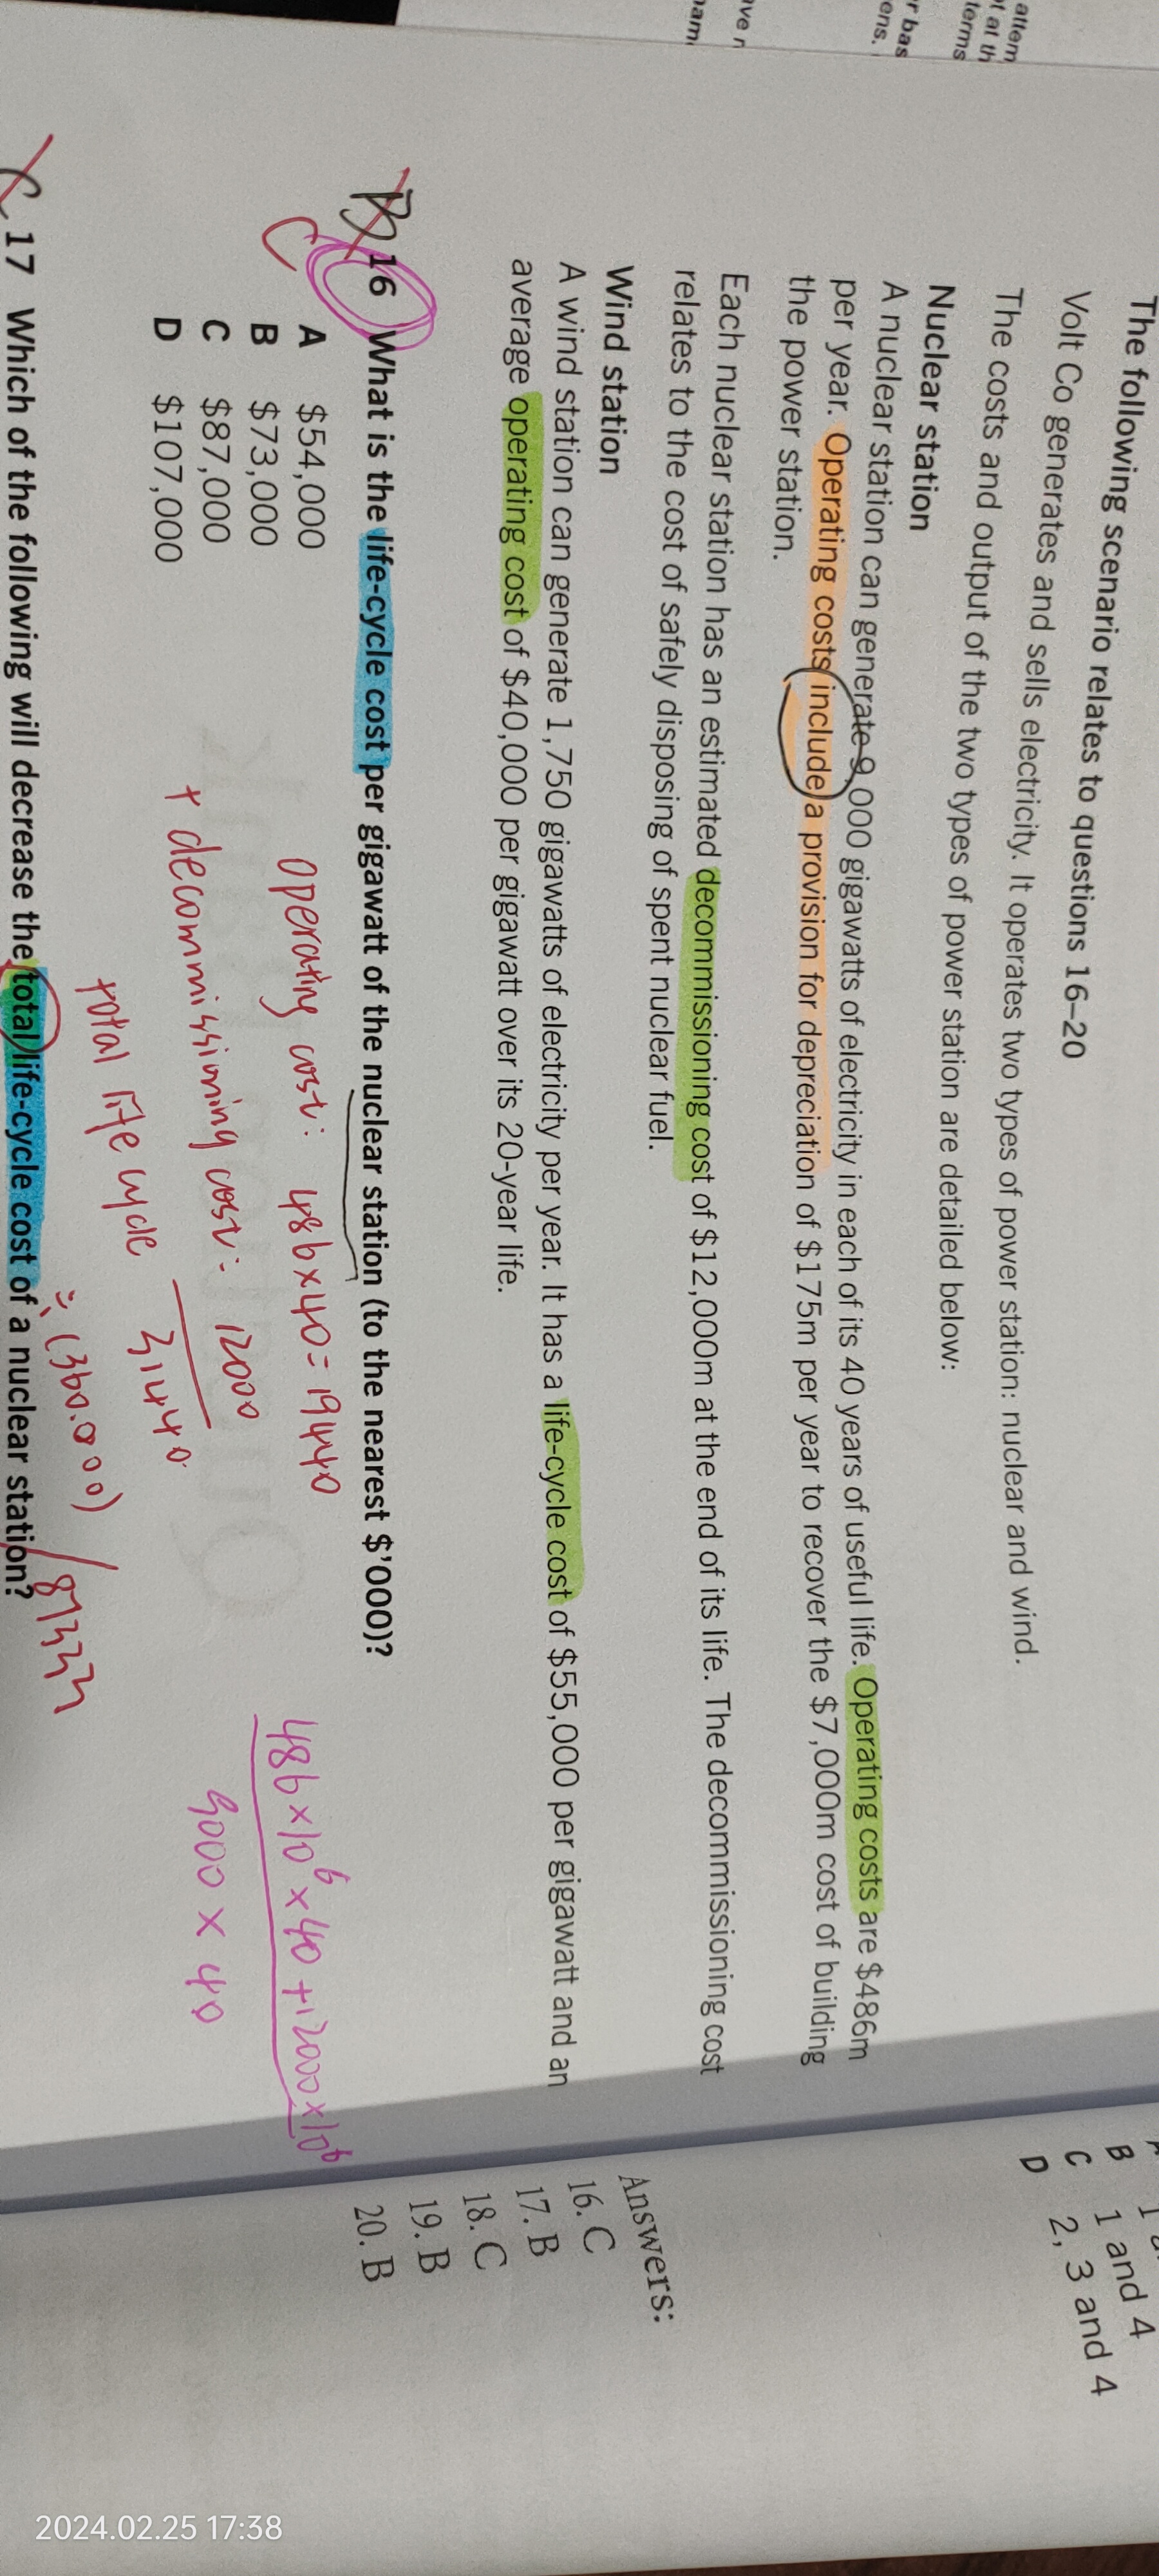 attem
t at th
terms
r bas
ens.
ave n
nam
The following scenario relates to questions 16–20
Volt Co generates and sells electricity. It operates two types of power station: nuclear and wind.
The costs and output of the two types of power station are detailed below:
Nuclear station
A nuclear station can generate 9,000 gigawatts of electricity in each of its 40 years of useful life. Operating costs are $486m
per year. Operating costs include a provision for depreciation of $175m per year to recover the $7,000m cost of building
the power station.
Each nuclear station has an estimated decommissioning cost of $12,000m at the end of its life. The decommissioning cost
relates to the cost of safely disposing of spent nuclear fuel.
Wind station
A wind station can generate 1,750 gigawatts of electricity per year. It has a life-cycle cost of $55,000 per gigawatt and an
average operating cost of $40,000 per gigawatt over its 20-year life.
B 16 What is the life-cycle cost per gigawatt of the nuclear station (to the nearest $'000)?
C
A $54,000
B $73,000
C $87,000
D $107,000
operating cost: 486×40=19440
+ decommissioning cost: 12000
total life cycle 31440
÷ (360.000) / 87333
486×10⁶×40+12000×10⁶
9000 × 40
C 17 Which of the following will decrease the total life-cycle cost of a nuclear station?
B 1 and 4
C 2, 3 and 4
D
Answers:
16. C
17. B
18. C
19. B
20. B
2024.02.25 17:38